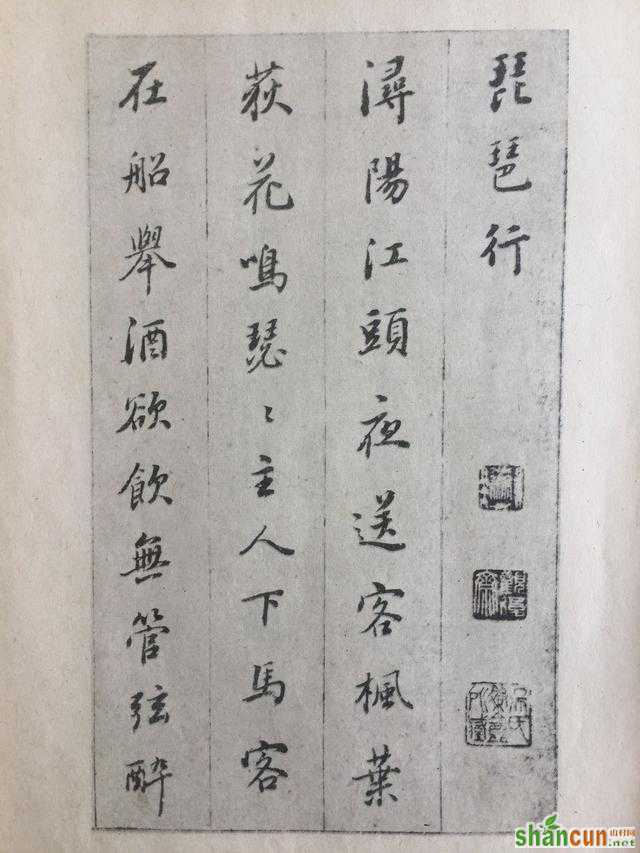 琵琶行
潯陽江頭夜送客楓葉
荻花鳴瑟〻主人下馬客
在船舉酒欲飲無管弦醉
shancun
山村网
.net